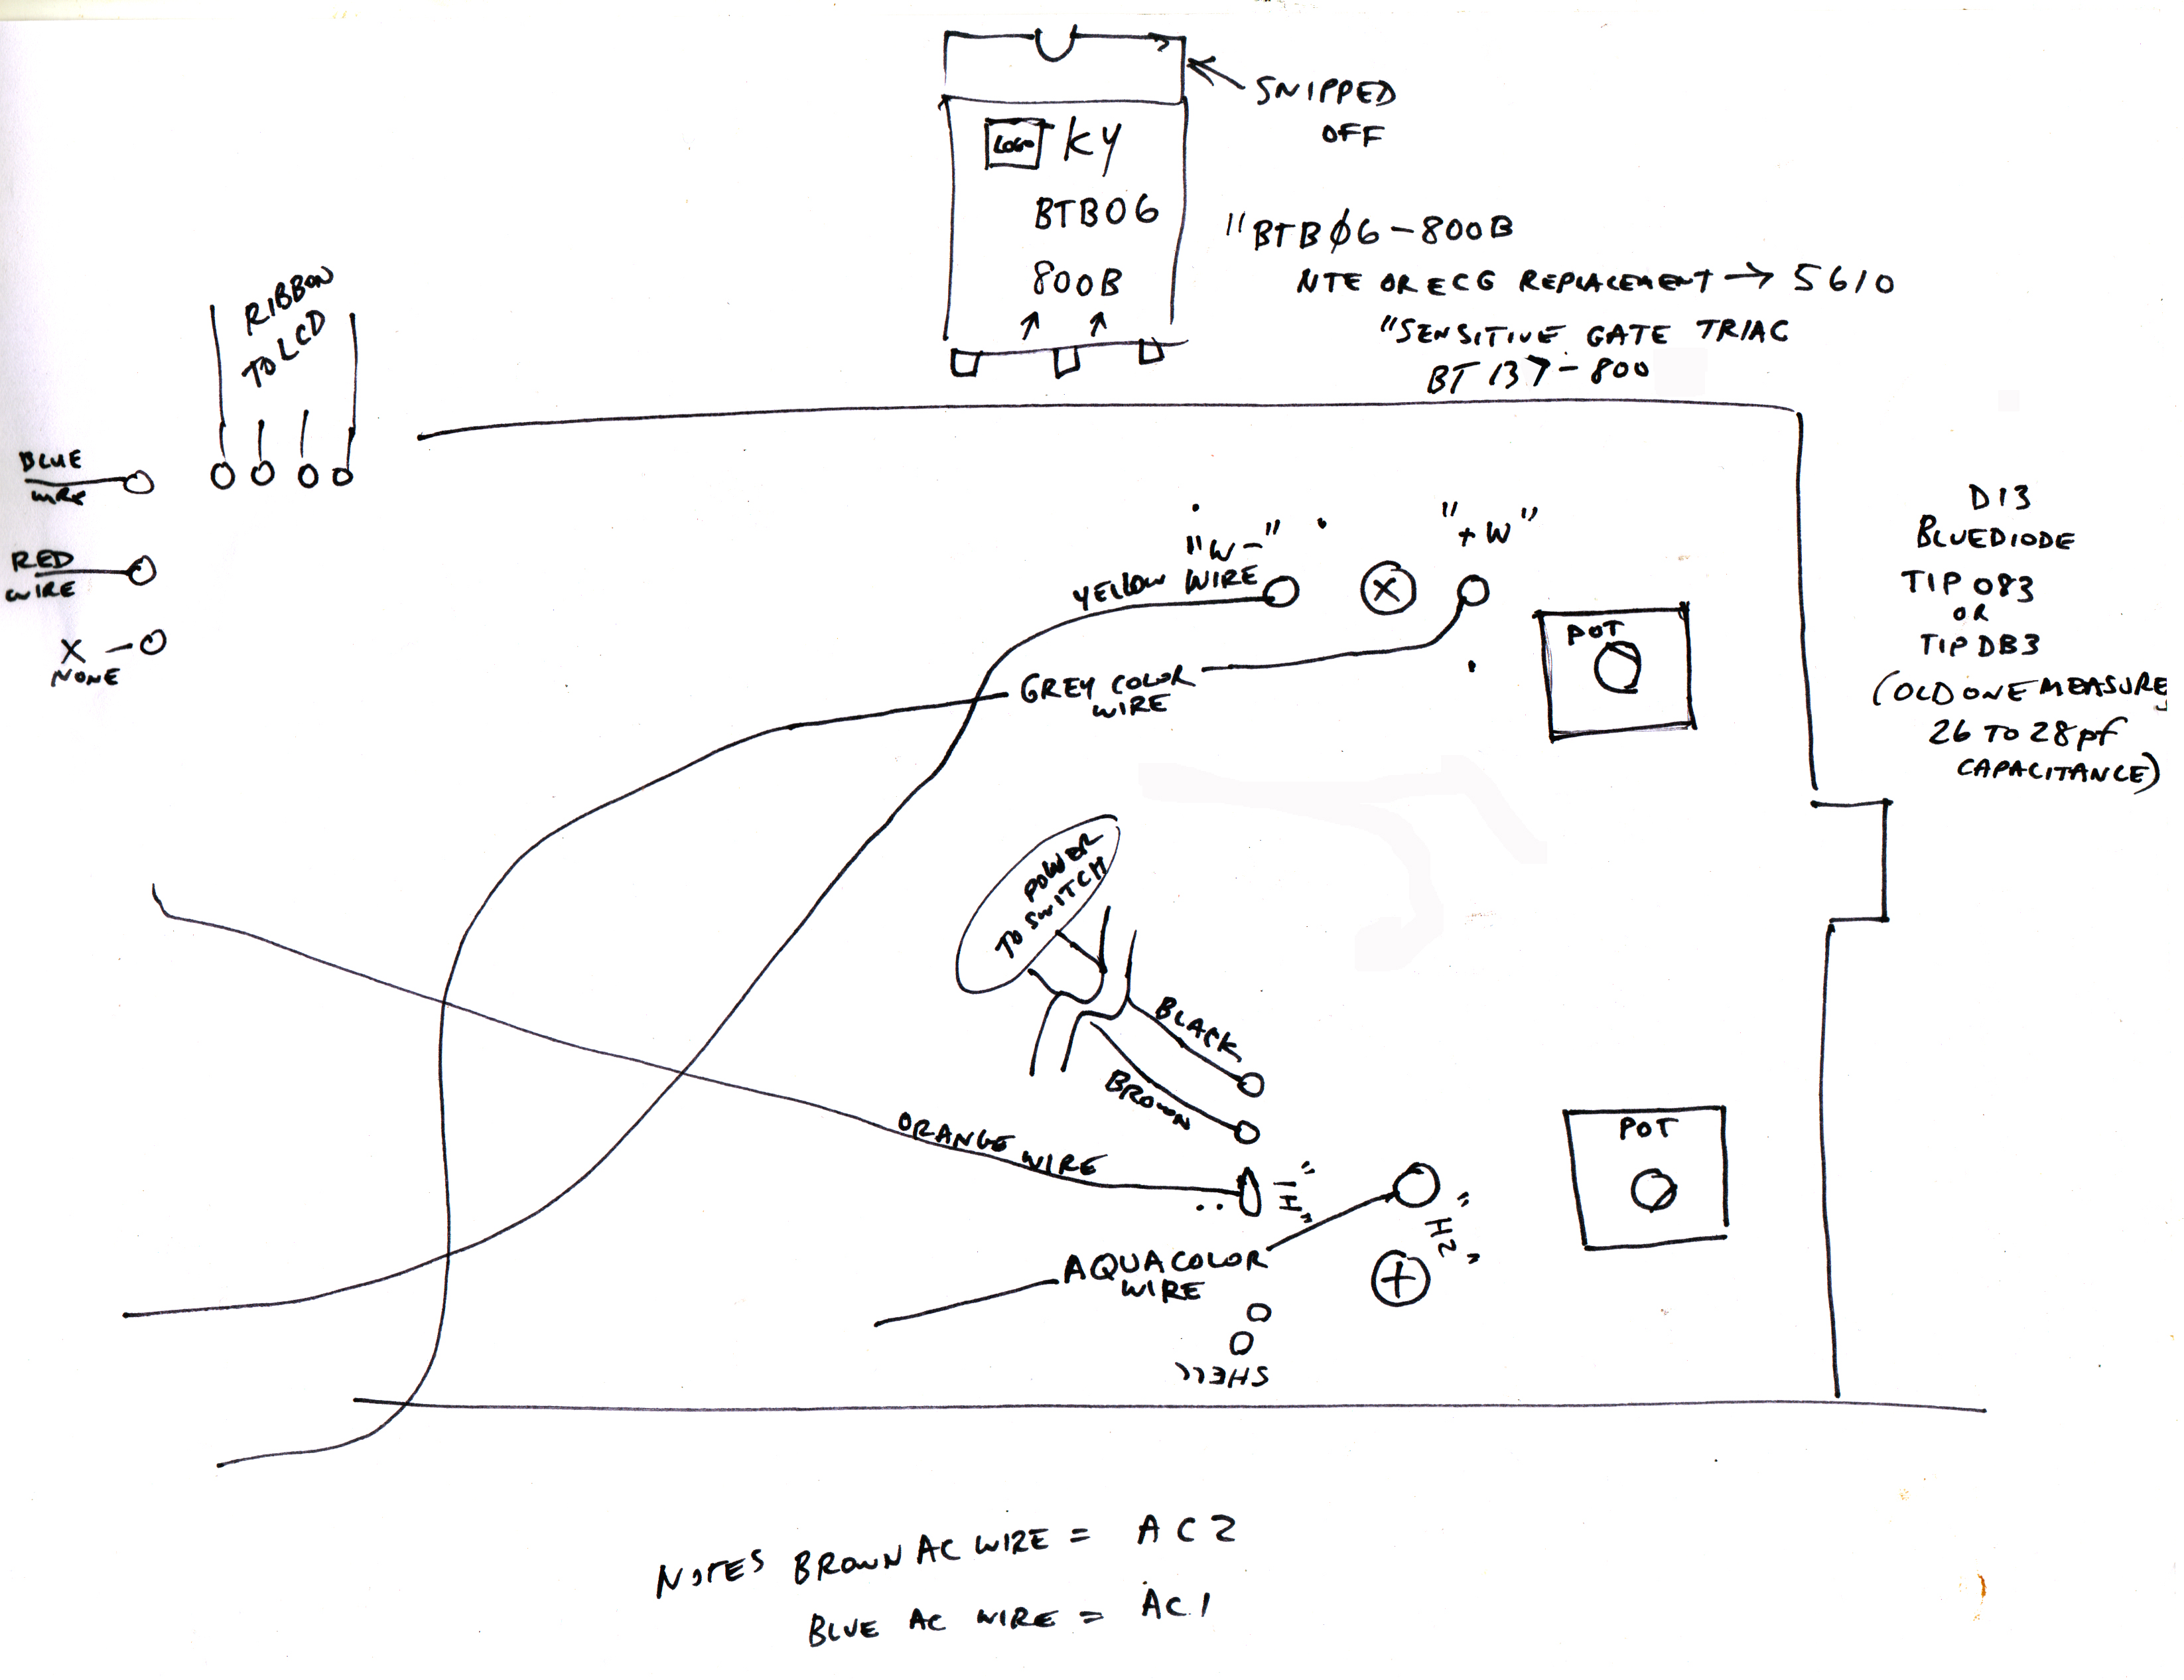 SNIPPED
OFF
LOGO KY
BTB06
800B
"BTB06-800B
NTE OR ECG REPLACEMENT → 5610
"SENSITIVE GATE TRIAC
BT 137-800
RIBBON
TO LCD
BLUE
WIRE
RED
WIRE
X
NONE
"W-"
"+W"
YELLOW WIRE
X
GREY COLOR
WIRE
POT
D13
BLUEDIODE
TIP 083
OR
TIP DB3
(OLD ONE MEASURES
26 TO 28pf
CAPACITANCE)
POWER
TO SWITCH
BLACK
BROWN
ORANGE WIRE
"H2"
AQUA COLOR
WIRE
+
POT
SHELL
NOTES BROWN AC WIRE = AC2
BLUE AC WIRE = AC1